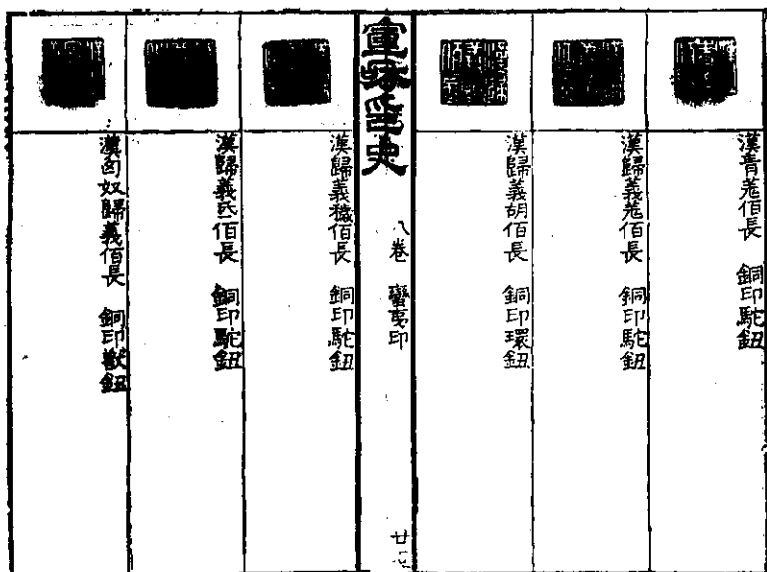 漢青羗佰長　銅印駝鈕
漢歸義羗佰長　銅印駝鈕
漢歸義胡佰長　銅印環鈕
宣和印史　八卷　蠻夷印
漢歸義穢佰長　銅印駝鈕
漢歸義氐佰長　銅印駝鈕
漢匈奴歸義佰長　銅印獸鈕